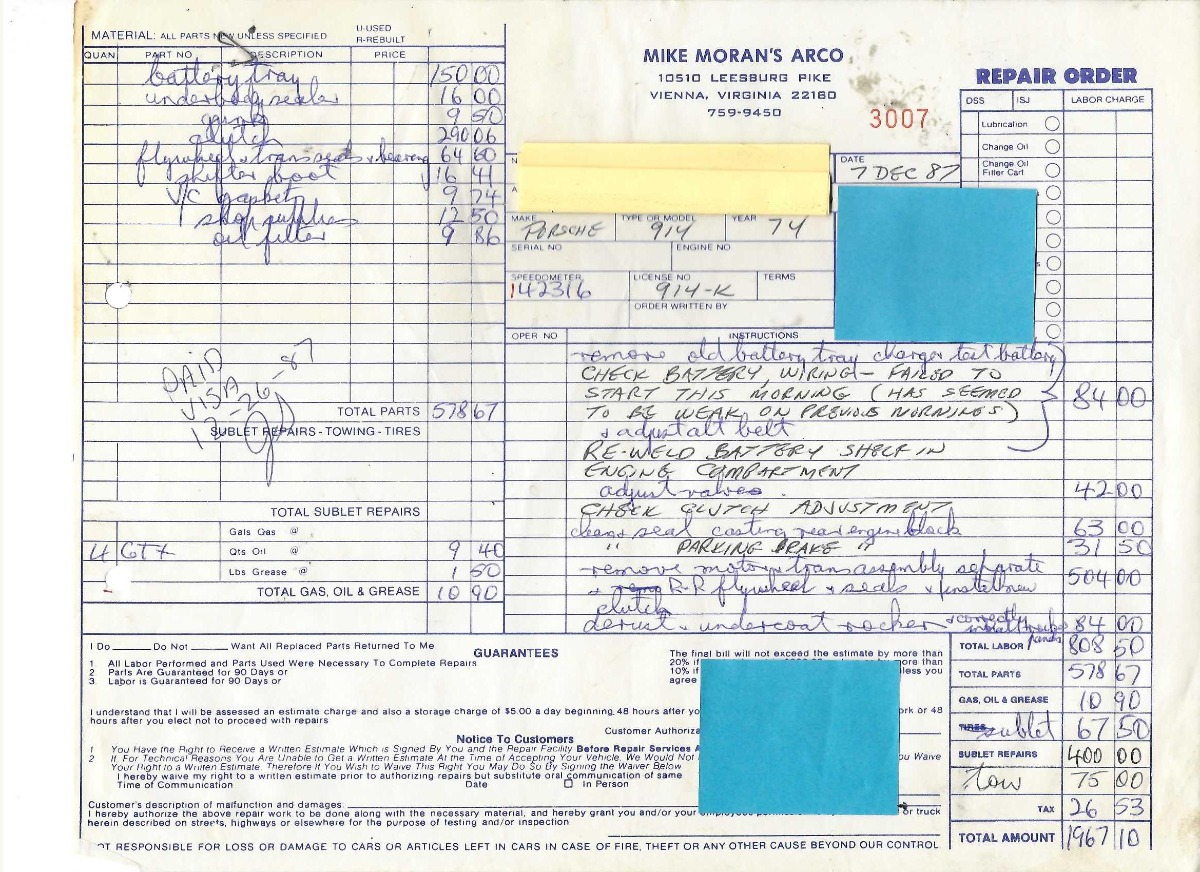 MATERIAL: ALL PARTS NEW UNLESS SPECIFIED
U-USED
R-REBUILT
QUAN. PART NO. DESCRIPTION PRICE
battery tray 150 00
underbody sealer 16 00
9 50
clutch 290 06
flywheel + trans seals + bearing 64 60
shifter boot 16 41
V/C gaskets 9 74
shop supplies 12 50
oil filter 9 86
PAID
VISA
12-26-87
TOTAL PARTS 578 67
SUBLET REPAIRS - TOWING - TIRES
TOTAL SUBLET REPAIRS
Gals Gas @
4 GTX Qts Oil @ 9 40
Lbs Grease @ 1 50
TOTAL GAS, OIL & GREASE 10 90
MIKE MORAN'S ARCO
10510 LEESBURG PIKE
VIENNA, VIRGINIA 22180
759-9450
3007
REPAIR ORDER
DSS ISJ LABOR CHARGE
Lubrication
Change Oil
Change Oil
Filter Cart
DATE
7 DEC 87
MAKE TYPE OR MODEL YEAR
PORSCHE 914 74
SERIAL NO ENGINE NO
SPEEDOMETER LICENSE NO TERMS
142316 914-K
ORDER WRITTEN BY
OPER NO INSTRUCTIONS
remove old battery tray charger test battery
CHECK BATTERY, WIRING - FAILED TO
START THIS MORNING (HAS SEEMED 84 00
TO BE WEAK ON PREVIOUS MORNINGS)
+ adjust alt belt
RE-WELD BATTERY SHELF IN
ENGINE COMPARTMENT
adjust valves 42 00
CHECK CLUTCH ADJUSTMENT
clean + seal casting near engine block 63 00
" PARKING BRAKE " 31 50
remove motor + trans assembly separate
+ R-R flywheel + seals + install new 504 00
clutch
derust + undercoat rocker + correctly install rocker panels 84 00
I Do Do Not Want All Replaced Parts Returned To Me
GUARANTEES
1 All Labor Performed and Parts Used Were Necessary To Complete Repairs
2 Parts Are Guaranteed for 90 Days or
3 Labor is Guaranteed for 90 Days or
The final bill will not exceed the estimate by more than
20% if more than
10% if less you
agree
I understand that I will be assessed an estimate charge and also a storage charge of $5.00 a day beginning 48 hours after you ork or 48
hours after you elect not to proceed with repairs
Customer Authoriza
Notice To Customers
1 You Have the Right to Receive a Written Estimate Which is Signed By You and the Repair Facility Before Repair Services A
2 If For Technical Reasons You Are Unable to Get a Written Estimate At the Time of Accepting Your Vehicle, We Would Not ou Waive
Your Right to a Written Estimate. Therefore If You Wish to Waive This Right You May Do So By Signing the Waiver Below
I hereby waive my right to a written estimate prior to authorizing repairs but substitute oral communication of same
Time of Communication Date In Person
Customer's description of malfunction and damages:
I hereby authorize the above repair work to be done along with the necessary material, and hereby grant you and/or your or truck
herein described on streets, highways or elsewhere for the purpose of testing and/or inspection
OT RESPONSIBLE FOR LOSS OR DAMAGE TO CARS OR ARTICLES LEFT IN CARS IN CASE OF FIRE, THEFT OR ANY OTHER CAUSE BEYOND OUR CONTROL
TOTAL LABOR 808 50
TOTAL PARTS 578 67
GAS, OIL & GREASE 10 90
TIRES sublet 67 50
SUBLET REPAIRS 400 00
tow 75 00
TAX 26 53
TOTAL AMOUNT 1967 10